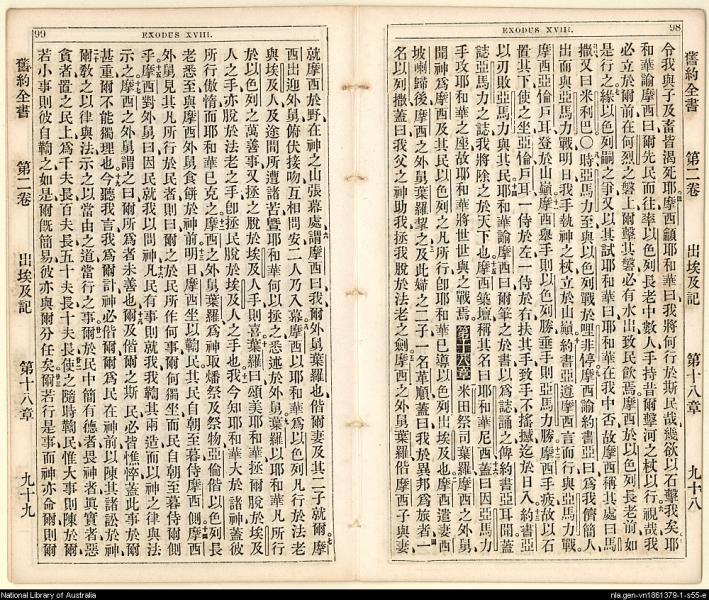 98
EXODUS XVIII.
舊約全書 第二卷 出埃及記 第十八章 九十八
令我與子及畜皆渴死耶摩西籲耶和華曰我將何行於斯民哉幾欲以石擊我矣耶
和華諭摩西曰爾先民而往率以色列長老中數人手持昔爾擊河之杖以行視哉我
必立於爾前在何烈之磐上爾擊其磐必有水出致民飲焉摩西於以色列長老前如
是行之緣以色列嗣之爭又以其試耶和華曰耶和華在我中否故摩西稱其處曰馬
撒又曰米利巴〇時亞馬力至與以色列戰於哩非停摩西諭約書亞曰爲我儕簡人
出而與亞馬力戰明日我手執神之杖立於山巔約書亞遵摩西言而行與亞馬力戰
摩西亞倫戶耳登於山巔摩西舉手則以色列勝垂手則亞馬力勝摩西手疲故以石
置其下使之坐亞倫戶耳一侍於左一侍於右扶其手致手不搖撼迄於日入約書亞
以刃敗亞馬力與其民耶和華諭摩西曰爾筆之於書以爲誌誦之俾約書亞耳聞蓋
誌亞馬力之誌我將除之於天下也摩西築壇稱其名曰耶和華尼西蓋曰因亞馬力
手攻耶和華之座故耶和華將世世與之戰焉第十八章米田祭司葉羅摩西之外舅
聞神爲摩西及其民以色列之凡所行卽耶和華已導以色列出埃及也摩西遣妻西
坡喇歸後摩西之外舅葉羅挈之及此婦之二子一名革順蓋曰我於異邦爲旅者一
名以列撒蓋曰我父之神助我拯我脫於法老之劍摩西之外舅葉羅偕摩西子與妻
99
EXODUS XVIII.
就摩西於野在神之山張幕處謂摩西曰我爾外舅葉羅也偕爾妻及其二子就爾摩
西出迎外舅俯伏接吻互相問安二人乃入幕摩西以耶和華爲以色列凡行於法老
與埃及人及途間所遭諸苦曁耶和華何以拯之悉述於外舅葉羅以耶和華凡所行
於以色列之萬善事又拯之脫於埃及人手則喜葉羅曰頌美耶和華拯爾脫於埃及
人之手亦脫於法老之手卽拯民脫於埃及人之手也我今知耶和華大於諸神蓋彼
所行傲惰而耶和華已克之摩西之外舅葉羅爲神取燔祭及祭物亞倫偕以色列長
老悉至與摩西外舅食餅於神前明日摩西坐以鞫民其民自朝至暮侍摩西側摩西
外舅見其凡所行於民者則曰爾之於民所作何事爾何獨坐而民自朝至暮侍爾側
乎摩西對外舅曰因民就我以問神凡民有事則就我我鞫其兩造而以神之律與法
示之摩西之外舅謂之曰爾所爲者未善也爾及偕爾之斯民必皆憊悴蓋此事於爾
甚重爾不能獨理也今聽我言我爲爾計神必偕爾爾爲民在神前以陳其諸訟於神
爾敎之以律與法示之以當由之道當行之事爾於民中簡有德者畏神者眞實者惡
貪者置之民上爲千夫長百夫長五十夫長十夫長使之隨時鞫民惟大事則陳於爾
若小事則彼自鞫之如是爾旣簡易彼亦與爾分任矣爾若行是事而神亦命爾則爾
舊約全書 第二卷 出埃及記 第十八章 九十九
National Library of Australia
nla.gen-vn1861379-1-s55-e